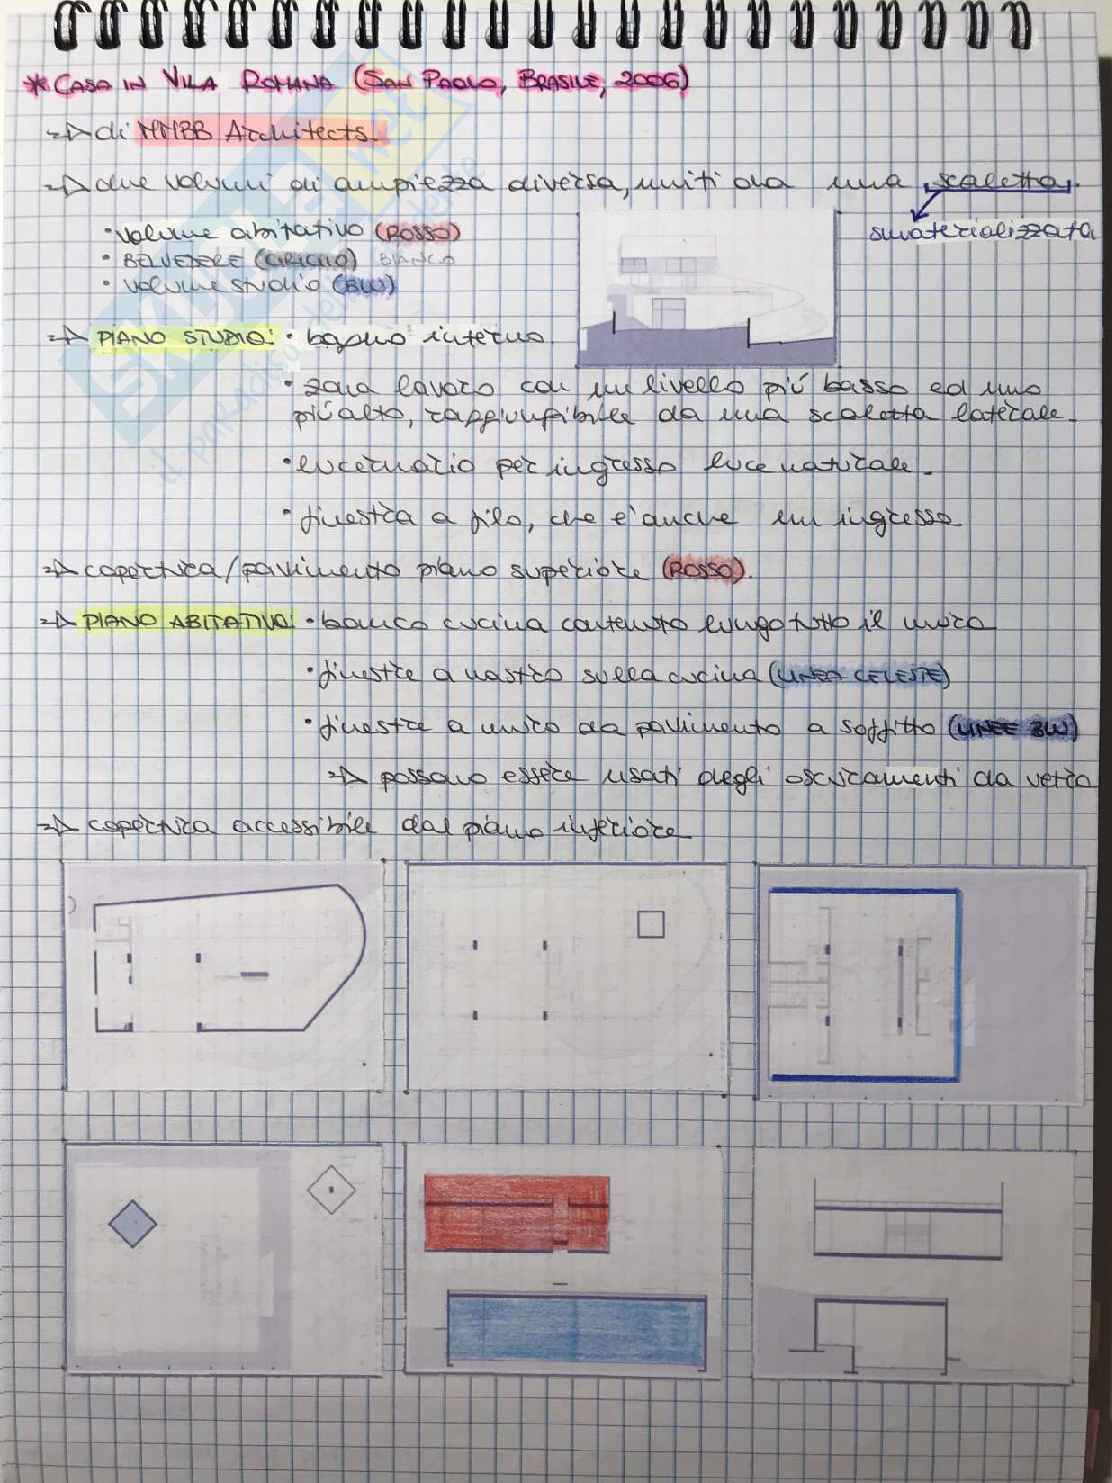 * CASA IN VILA ROMANA (SAN PAOLO, BRASILE, 2006)
→ di MMBB Architects.
→ due volumi di ampiezza diversa, uniti da una scaletta.
smaterializzata
• volume abitativo (ROSSO)
• BELVEDERE (GRIGIO) BIANCO
• volume studio (BLU)
→ PIANO STUDIO: • bagno interno.
• zona lavoro con un livello più basso ed uno
più alto, raggiungibile da una scaletta laterale.
• lucernario per ingresso luce naturale.
• finestra a filo, che è anche un ingresso
→ copertura/pavimento piano superiore (ROSSO).
→ PIANO ABITATIVO: • banco cucina contenuto lungo tutto il muro
• finestre a nastro sulla cucina (LINEA CELESTE)
• finestre a muro da pavimento a soffitto (LINEE BLU)
→ possono essere usati degli oscuramenti da
→ copertura accessibile dal piano inferiore